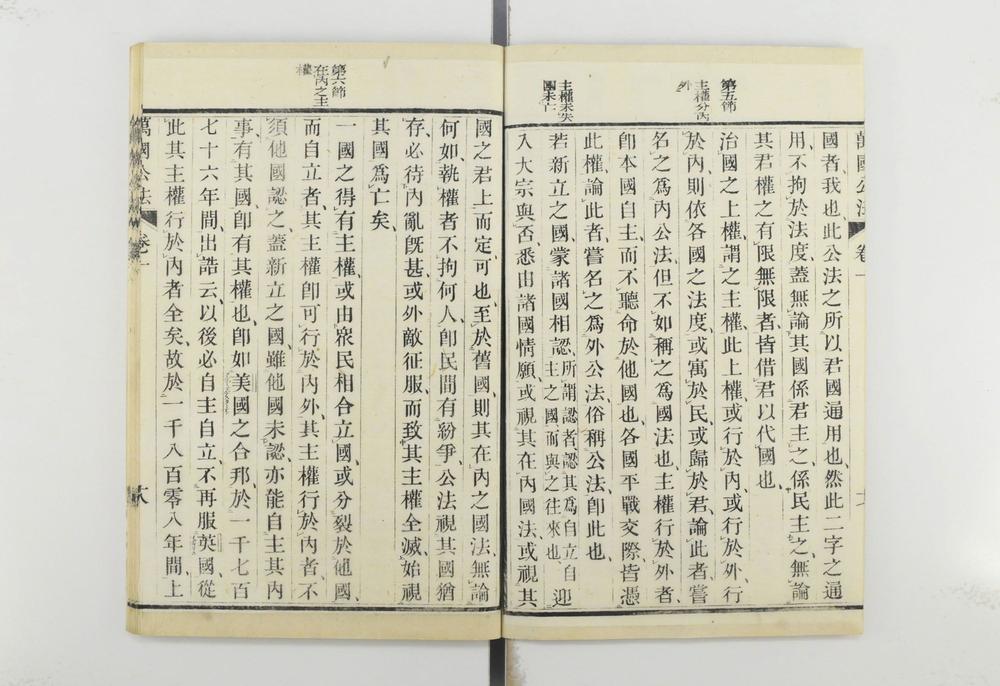 第五節
主權分內
外
主權未失
國未亡
萬國公法 卷一
國者我也此公法之所以君國通用也然此二字之通
用不拘於法度蓋無論其國係君主之係民主之無論
其君權之有限無限者皆借君以代國也
治國之上權謂之主權此上權或行於內或行於外行
於內則依各國之法度或寓於民或歸於君論此者嘗
名之為內公法但不如稱之為國法也主權行於外者
卽本國自主而不聽命於他國也各國平戰交際皆憑
此權論此者嘗名之為外公法俗稱公法卽此也
若新立之國蒙諸國相認所謂認者認其為自立自主之國而與之往來也迎
入大宗與否悉由諸國情願或視其在內國法或視其
第六節
在內之主
權
國之君上而定可也至於舊國則其在內之國法無論
何如執權者不拘何人卽民間有紛爭公法視其國猶
存必待內亂旣甚或外敵征服而致其主權全滅始視
其國為亡矣
一國之得有主權或由衆民相合立國或分裂於他國
而自立者其主權卽可行於內外其主權行於內者不
須他國認之蓋新立之國雖他國未認亦能自主其內
事有其國卽有其權也卽如美國之合邦於一千七百
七十六年間出誥云以後必自主自立不再服英國從
此其主權行於內者全矣故於一千八百零八年間上
萬國公法 卷一